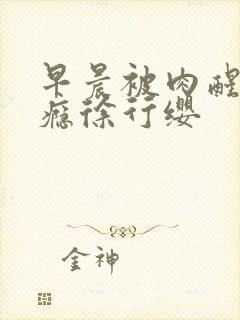 早晨被肉醒
瘾徐行缨
金神